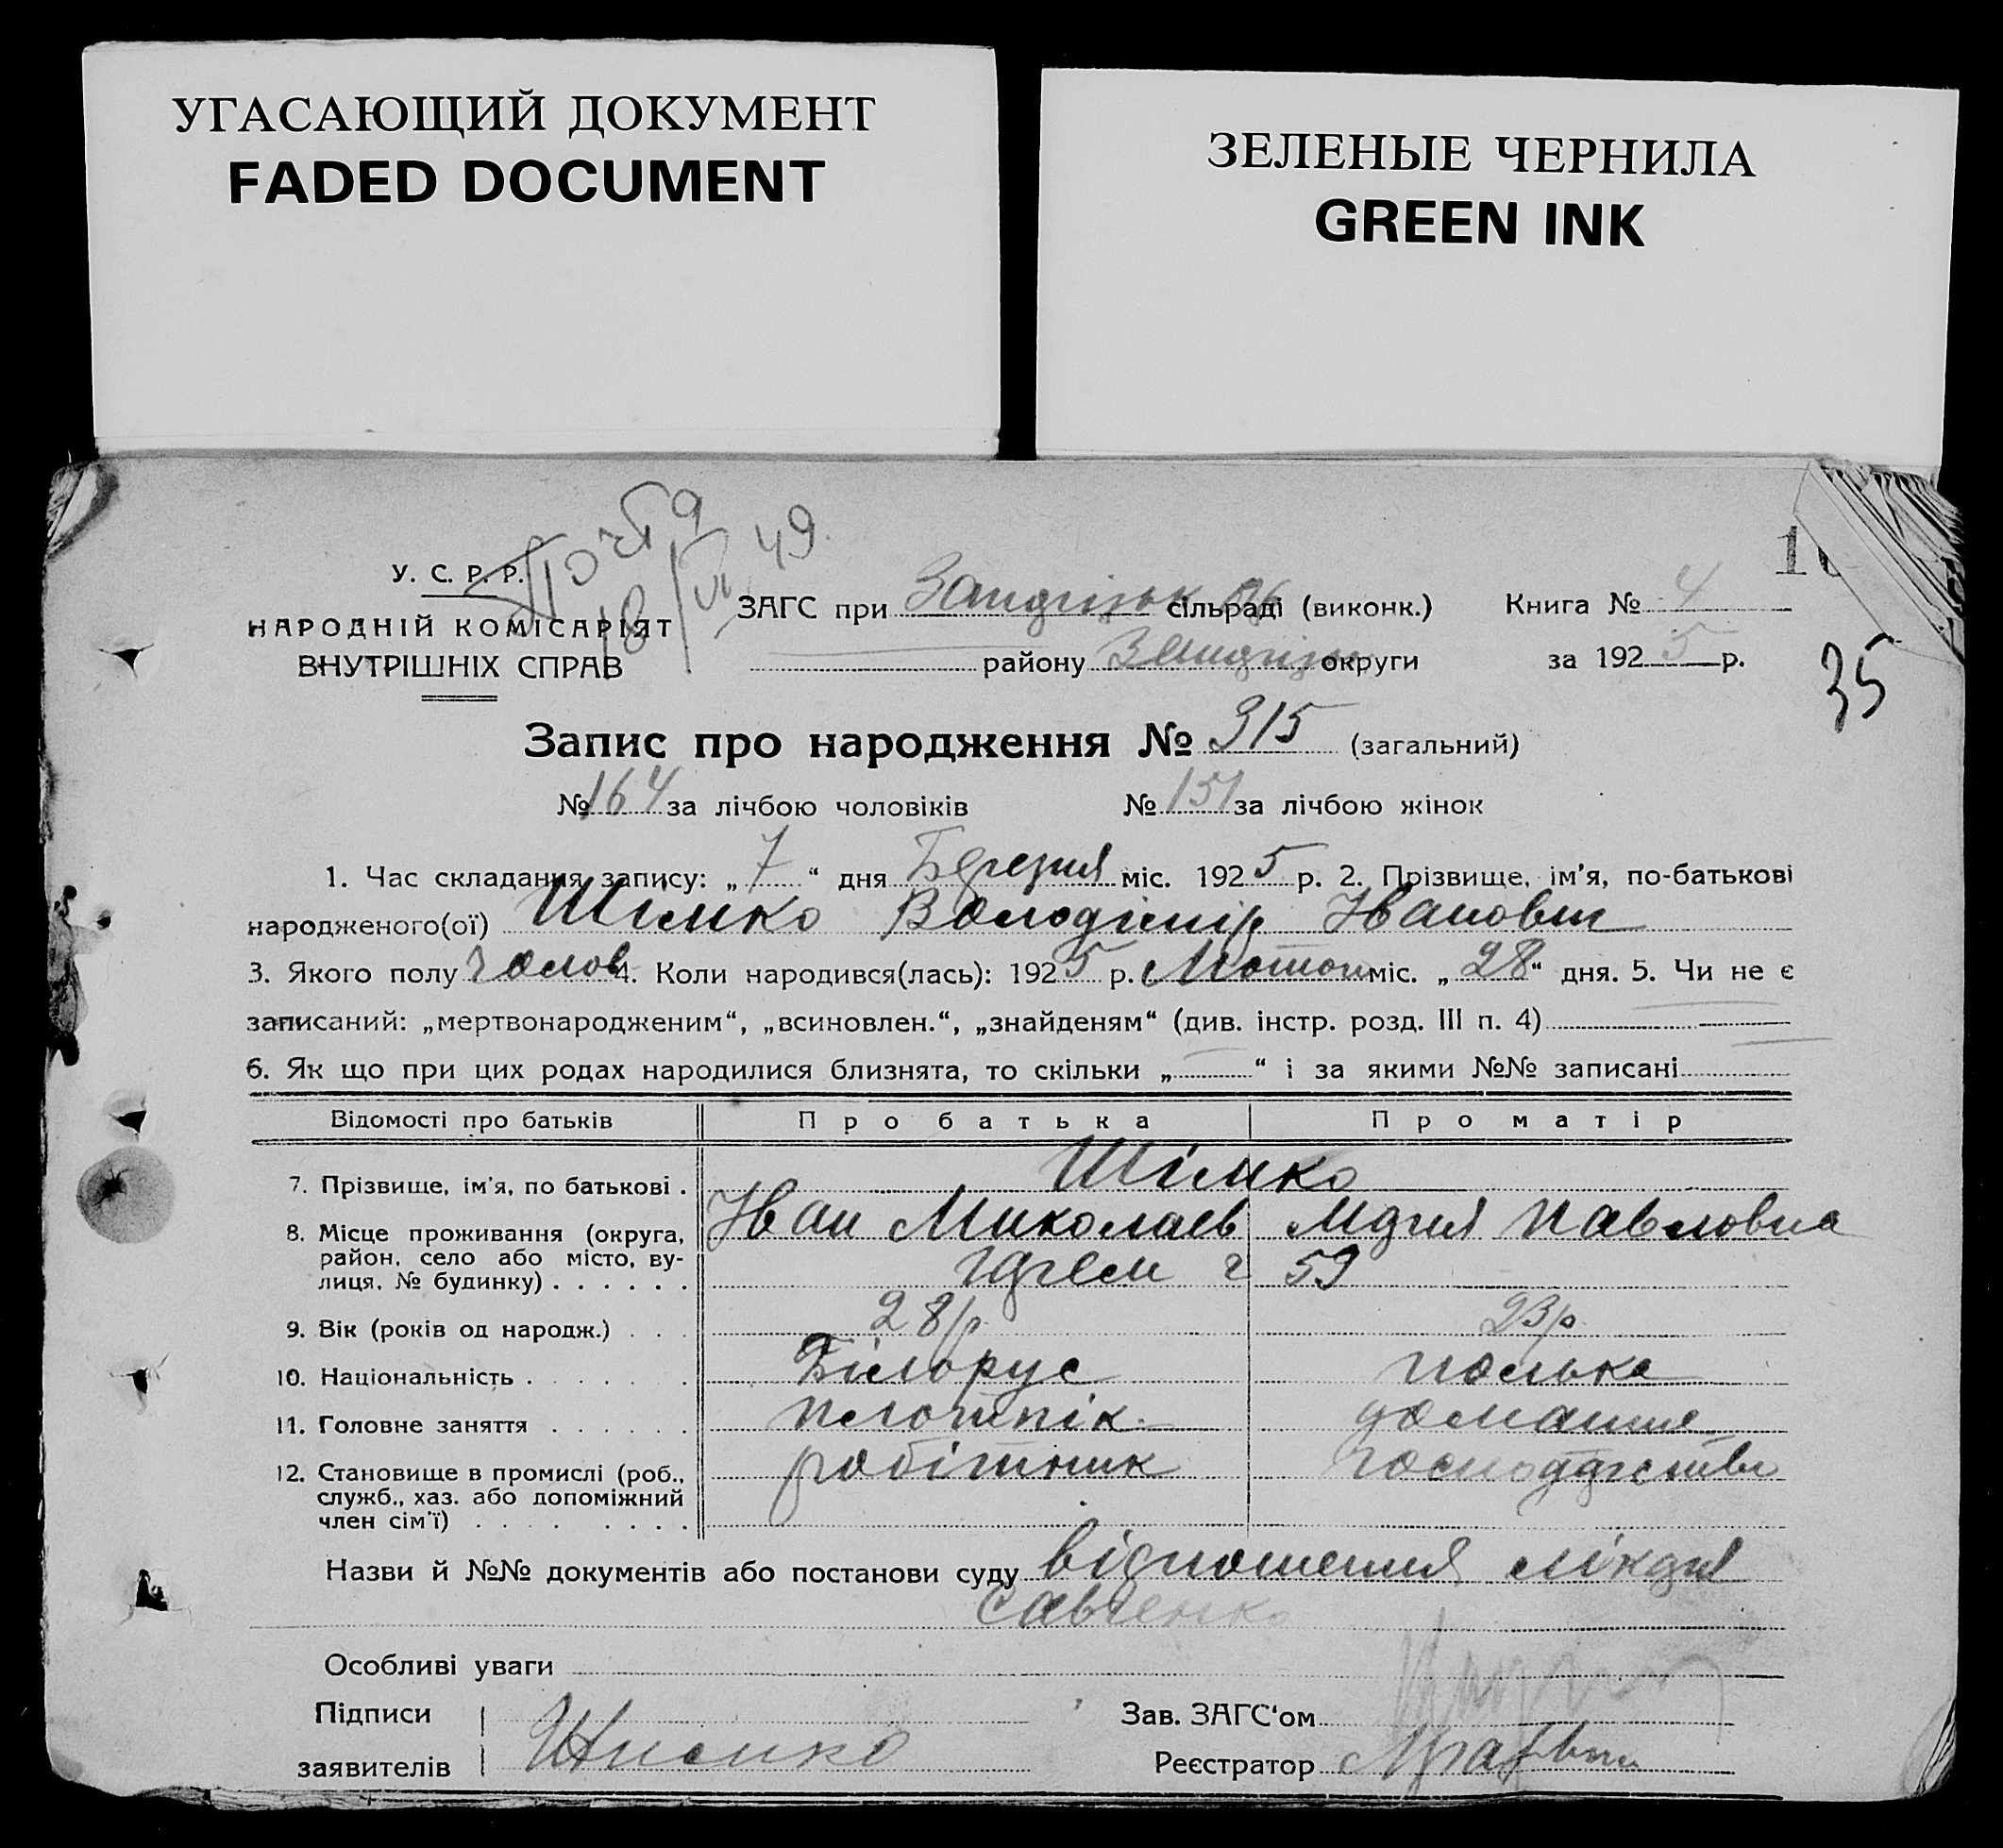 УГАСАЮЩИЙ ДОКУМЕНТ
FADED DOCUMENT
ЗЕЛЕНЫЕ ЧЕРНИЛА
GREEN INK
49
18/VI
У. С. Р. Р.
НАРОДНІЙ КОМІСАРІЯТ
ВНУТРІШНІХ СПРАВ
ЗАГС при сільраді (виконк.) Книга № 4
району округи за 1925 р.
35
Запис про народження № 315 (загальний)
№ 164 за лічбою чоловіків № 151 за лічбою жінок
1. Час складання запису: „7“ дня Березня міс. 1925 р. 2. Прізвище, ім’я, по-батькові
народженого(ої) Шімко Володімір Іванович
3. Якого полу чолов 4. Коли народився(лась): 1925 р. Лютого міс. „28“ дня. 5. Чи не є
записаний: „мертвонародженим“, „всиновлен.“, „знайденям“ (див. інстр. розд. III п. 4)
6. Як що при цих родах народилися близнята, то скільки „—“ і за якими №№ записані
Відомості про батьків Про батька Про матір
7. Прізвище, ім’я, по батькові . Шімко
Іван Миколаєв Марія Павловна
8. Місце проживання (округа, район, село або місто, вулиця, № будинку) . . . . . . 59
9. Вік (років од народж.) . . . 28 р. 23 р.
10. Національність . . . . . . Білорус полька
11. Головне заняття . . . . . . плотнік домашнє
12. Становище в промислі (роб., служб., хаз. або допоміжний член сім’ї) . . . . . . . . робітник господарство
Назви й №№ документів або постанови суду відношення лікаря
Савченко
Особливі уваги
Підписи
заявителів Шимко
Зав. ЗАГС‘ом
Реєстратор